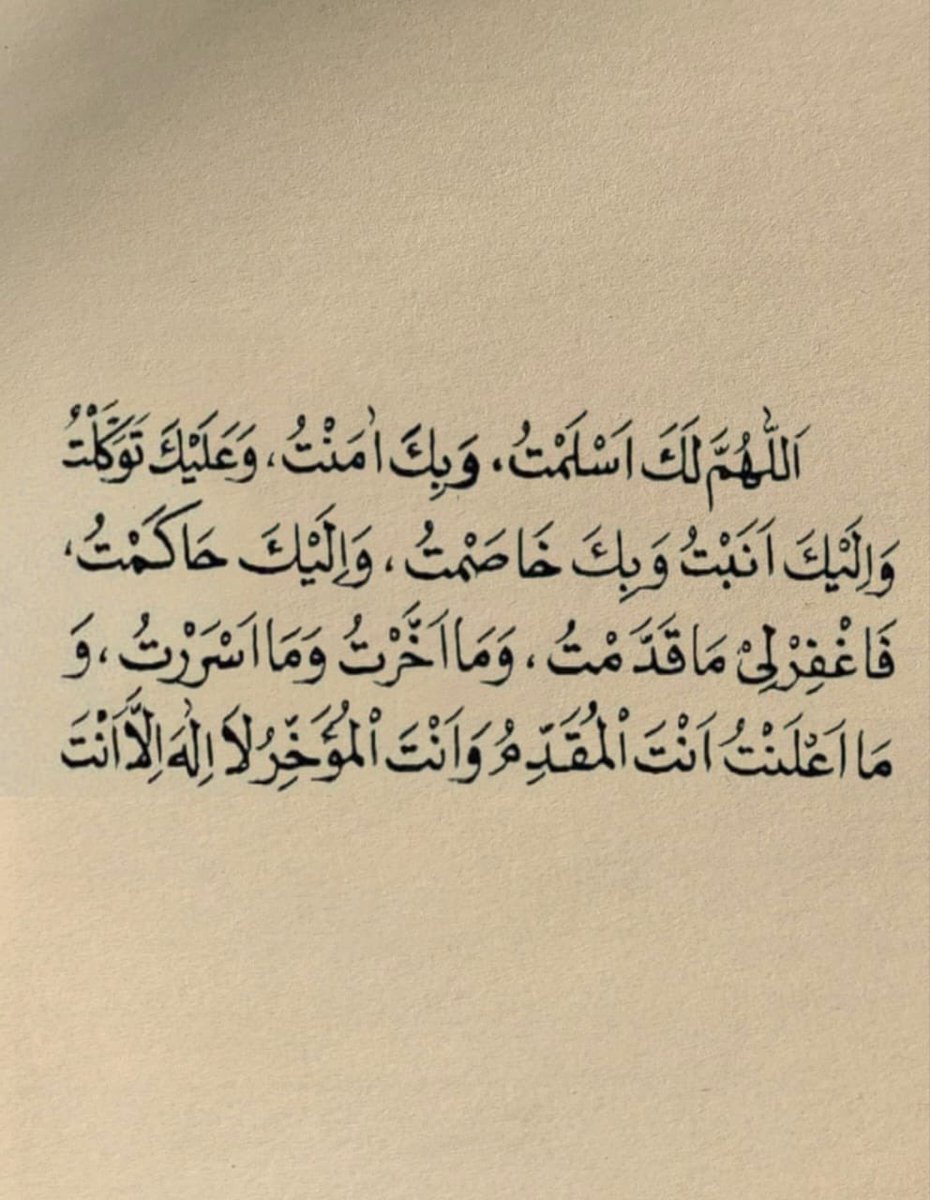 اَللّٰهُمَّ لَكَ اَسْلَمْتُ، وَبِكَ اٰمَنْتُ، وَعَلَيْكَ تَوَكَّلْتُ
وَاِلَيْكَ اَنَبْتُ وَبِكَ خَاصَمْتُ، وَاِلَيْكَ حَاكَمْتُ،
فَاغْفِرْلِيْ مَاقَدَّمْتُ، وَمَااَخَّرْتُ وَمَااَسْرَرْتُ، وَ
مَااَعْلَنْتُ اَنْتَ الْمُقَدِّمُ وَاَنْتَ الْمُؤَخِّرُ لَا اِلٰهَ اِلَّا اَنْتَ